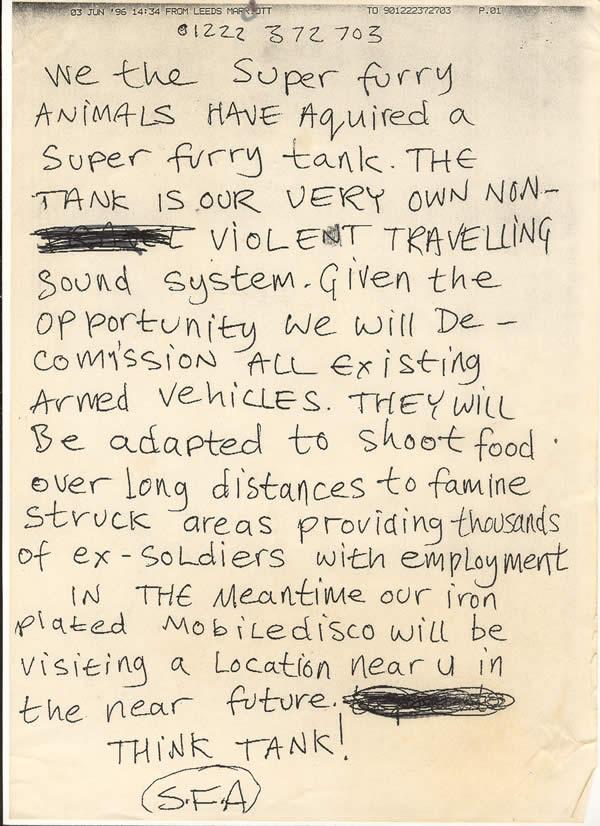 03 JUN '96 14:34 FROM LEEDS MARRIOTT TO 901222372703 P.01
01222 372 703
We the Super furry
ANiMALS HAVE Aquired a
Super furry tank. THE
TANK IS OUR VERY OWN NON-
VIOLENT TRAVELLING
Sound system. Given the
opportunity we will De-
comission ALL existing
Armed vehicles. THEY WILL
Be adapted to shoot food
over long distances to famine
struck areas providing thousands
of ex-soldiers with employment
IN THE Meantime our iron
plated Mobile disco will be
visiting a Location near u in
the near future.
THINK TANK!
S.F.A